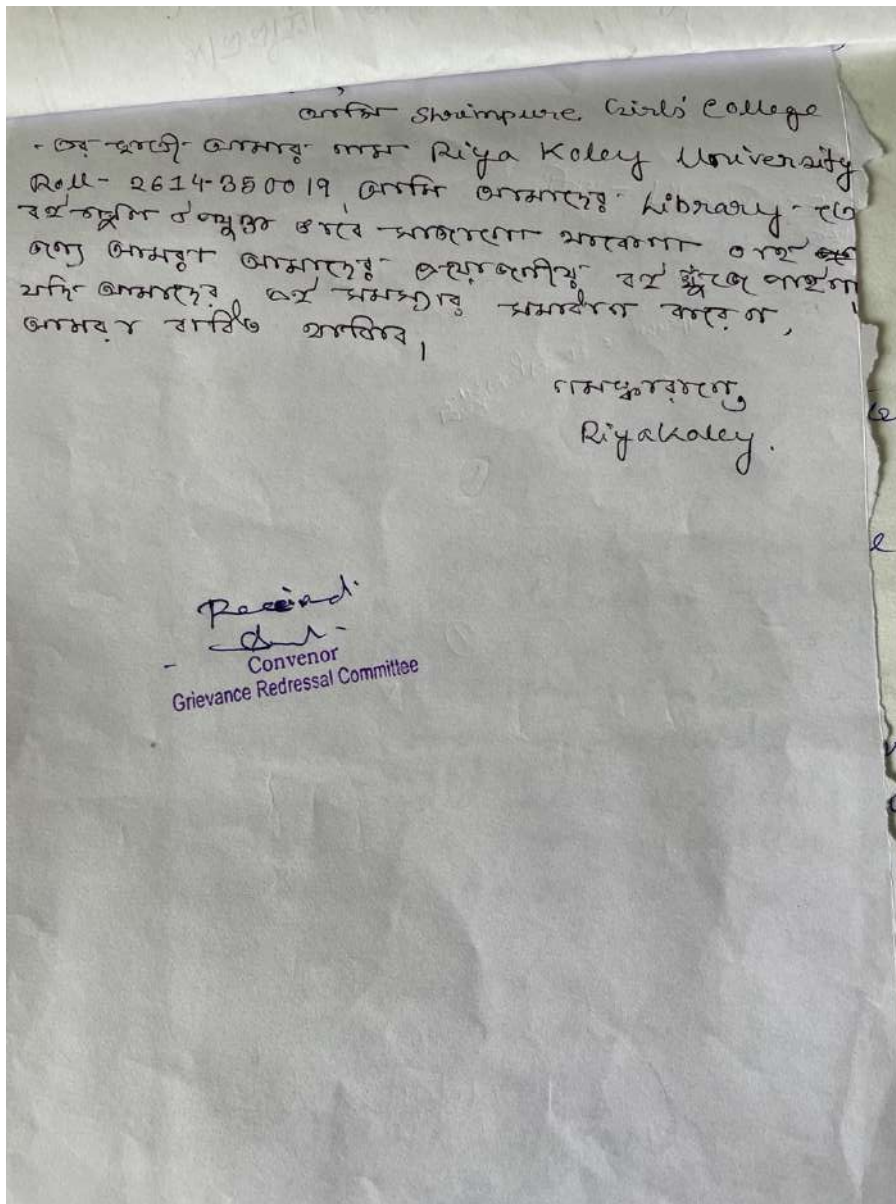 আমি Shrimpure Girls' College
-এর ছাত্রী আমার নাম Riya Koley University
Roll- 2614-350019 আমি আমাদের Library-তে
বইগুলি ঠিক ভাবে সাজানো থাকেনা তাই
জন্যে আমরা আমাদের প্রয়োজনীয় বই খুঁজে পাইনা
যদি আমাদের এই সমস্যার সমাধান করেন,
আমরা বাধিত থাকিব।
নমস্কারান্তে
Riya Koley.
Received
Convenor
Grievance Redressal Committee